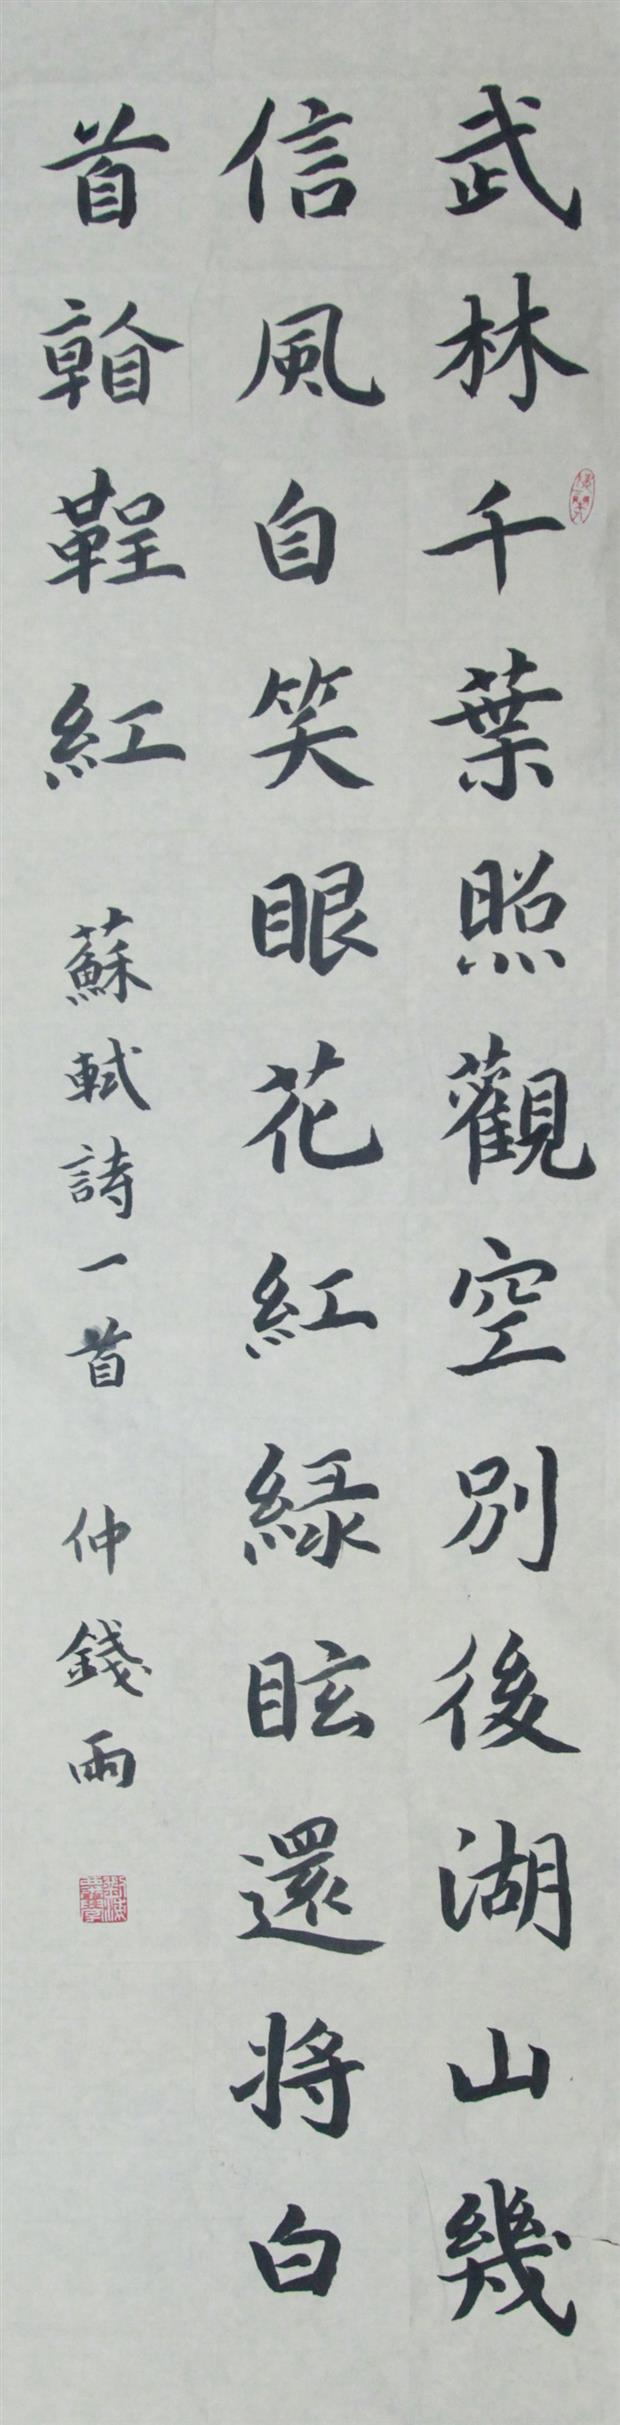 武林千葉照觀空別後湖山幾
信風自笑眼花紅緑眩還将白
首看鞓紅 蘇軾詩一首 仲錢雨